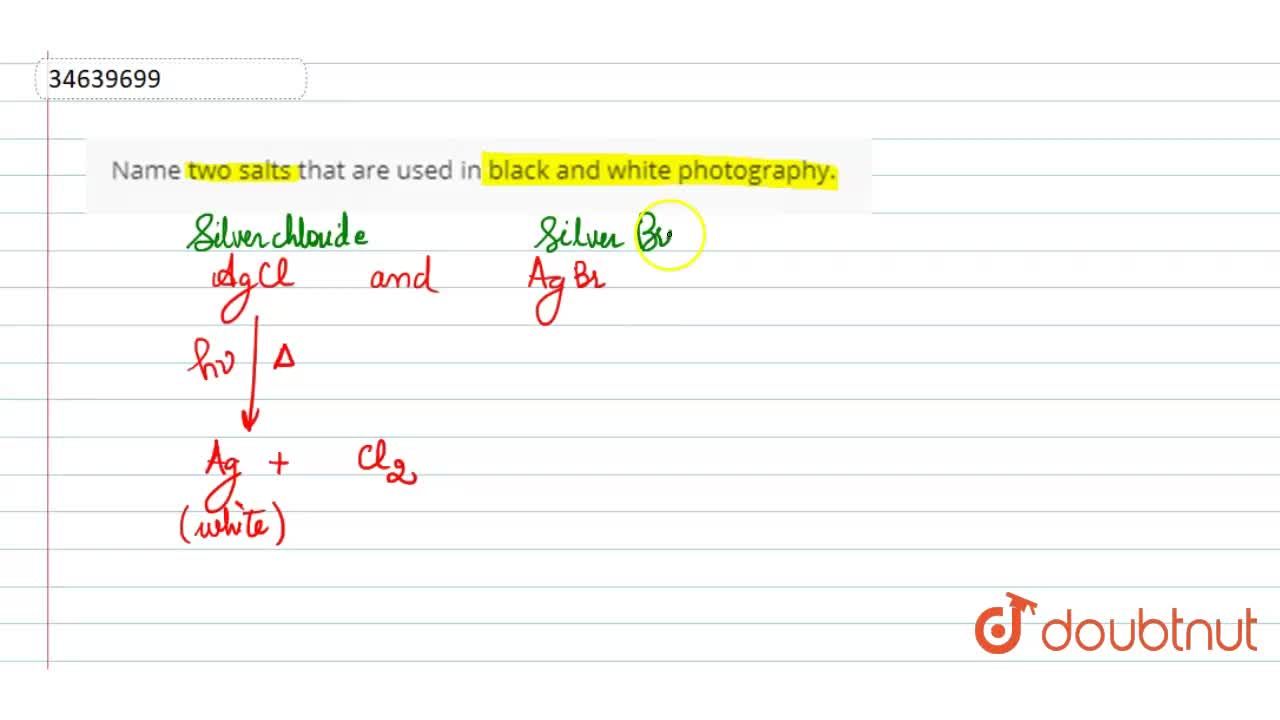 34639699
Name two salts that are used in black and white photography.
Silver chloride Silver Br
AgCl and AgBr
hν Δ
Ag + Cl2
(white)
doubtnut